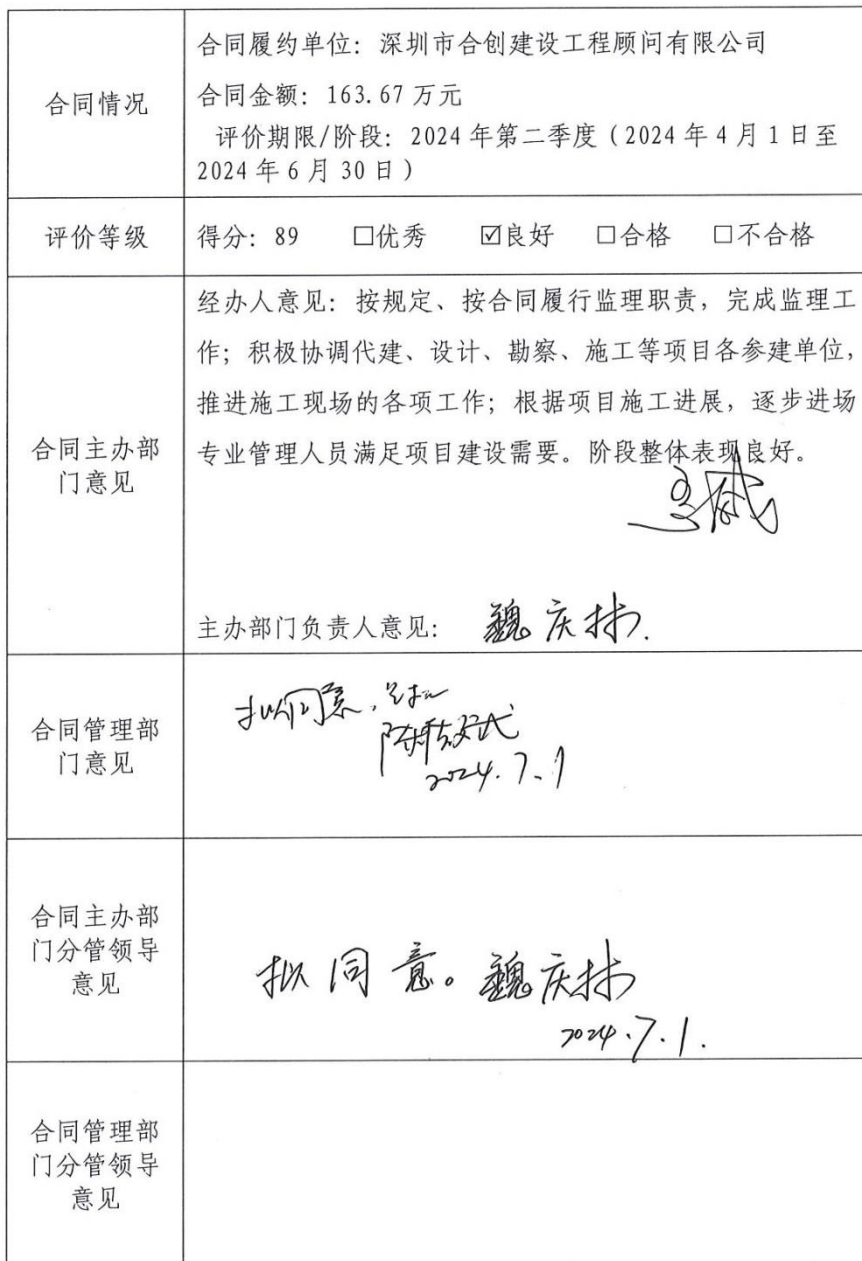 合同情况
合同履约单位：深圳市合创建设工程顾问有限公司
合同金额：163.67 万元
评价期限/阶段：2024 年第二季度（2024 年 4 月 1 日至
2024 年 6 月 30 日）
评价等级
得分：89 □优秀 ☑良好 □合格 □不合格
合同主办部
门意见
经办人意见：按规定、按合同履行监理职责，完成监理工
作；积极协调代建、设计、勘察、施工等项目各参建单位，
推进施工现场的各项工作；根据项目施工进展，逐步进场
专业管理人员满足项目建设需要。阶段整体表现良好。
主办部门负责人意见： 魏庆
合同管理部
门意见
拟同意，
2024.7.1
合同主办部
门分管领导
意见
拟同意。魏庆
2024.7.1.
合同管理部
门分管领导
意见